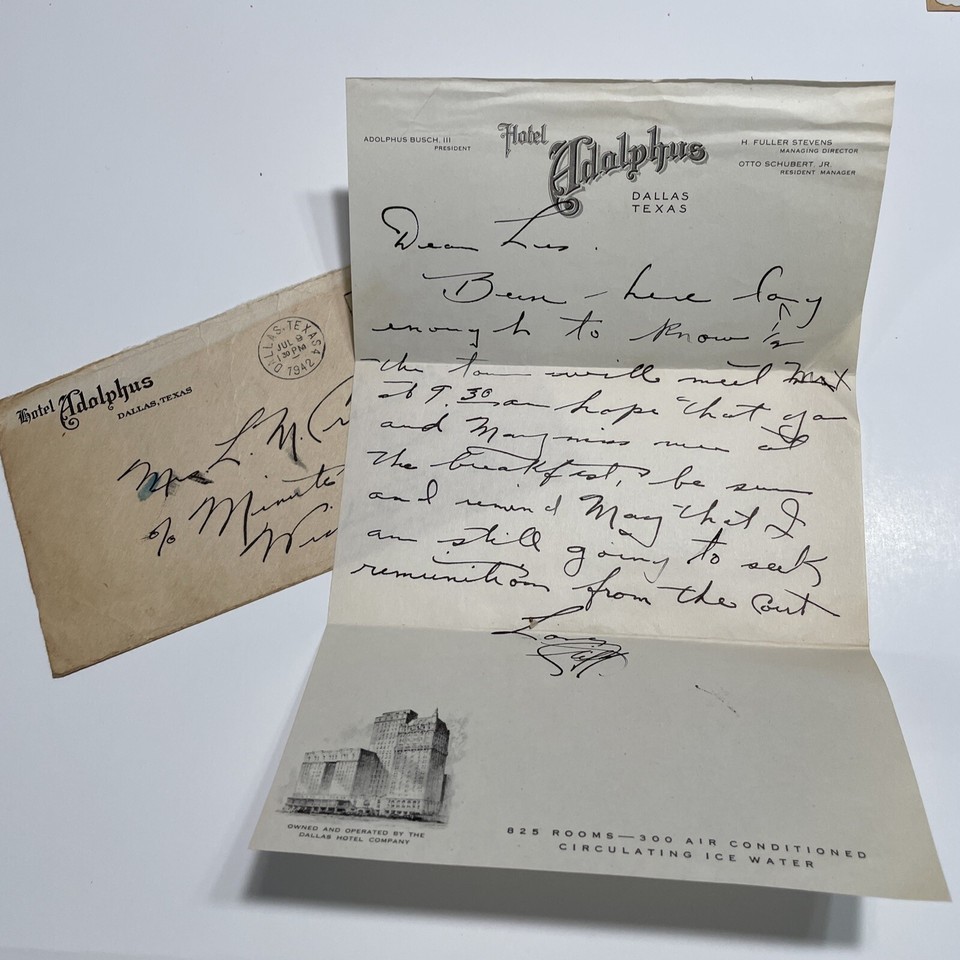 ADOLPHUS BUSCH, III
PRESIDENT
Hotel Adolphus
DALLAS
TEXAS
H. FULLER STEVENS
MANAGING DIRECTOR
OTTO SCHUBERT, JR.
RESIDENT MANAGER
Dear
Been here long
enough to know 1/2
the town will meet Max
at 9.30 am hope that you
and May miss me at
the breakfast, be sure
and remind May that I
am still going to seek
from the Court
Love
OWNED AND OPERATED BY THE
DALLAS HOTEL COMPANY
825 ROOMS—300 AIR CONDITIONED
CIRCULATING ICE WATER
Hotel Adolphus
DALLAS, TEXAS
DALLAS, TEXAS 4
JUL 9
1 30 PM
1942
Mrs. L. N.
c/o